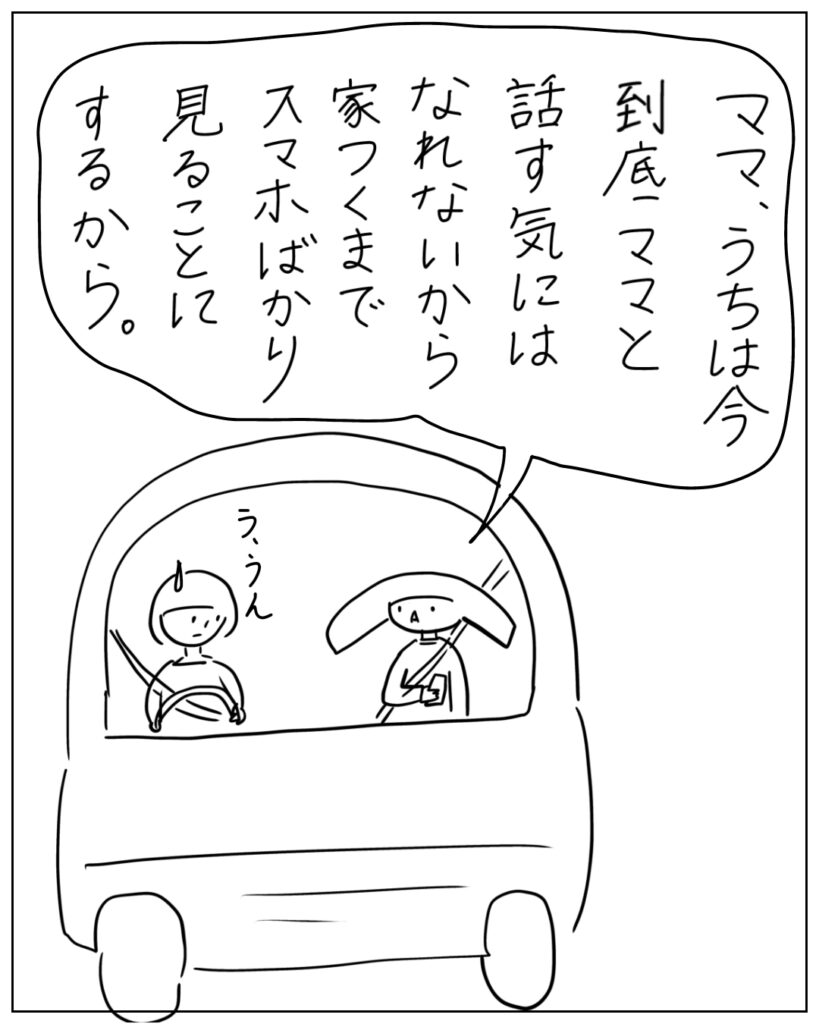 ママ、うちは今
到底ママと
話す気には
なれないから
家つくまで
スマホばかり
見ることに
するから。
う、うん